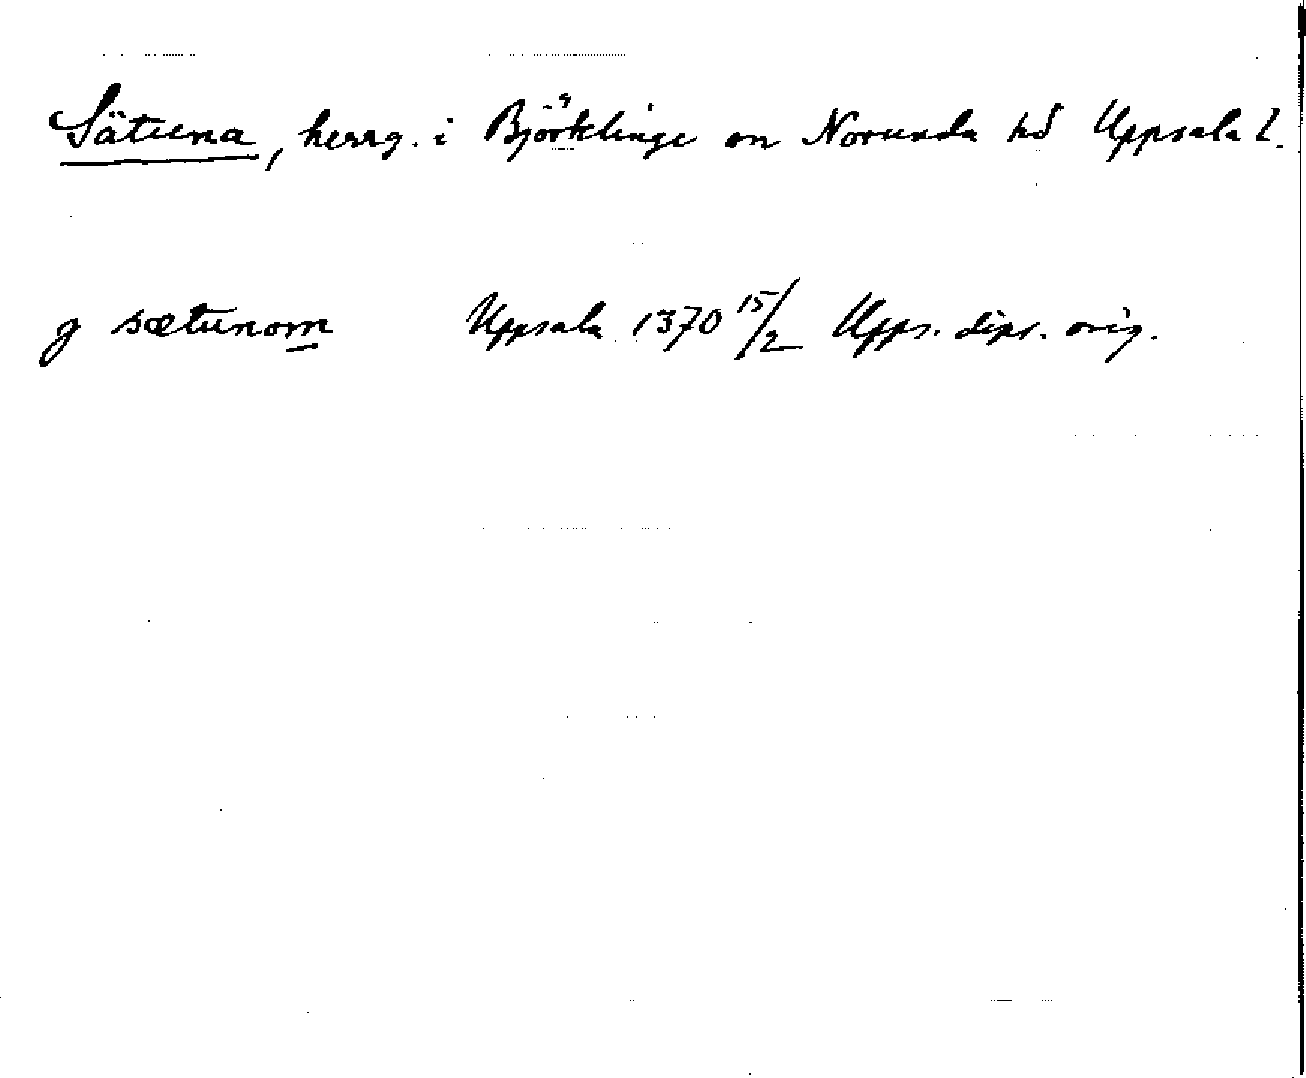 Sätuna, herrg. i Björklinge sn Norunda hd Uppsala l.
g sætunom Uppsala 1370 15/2 Upps. dipl. orig.